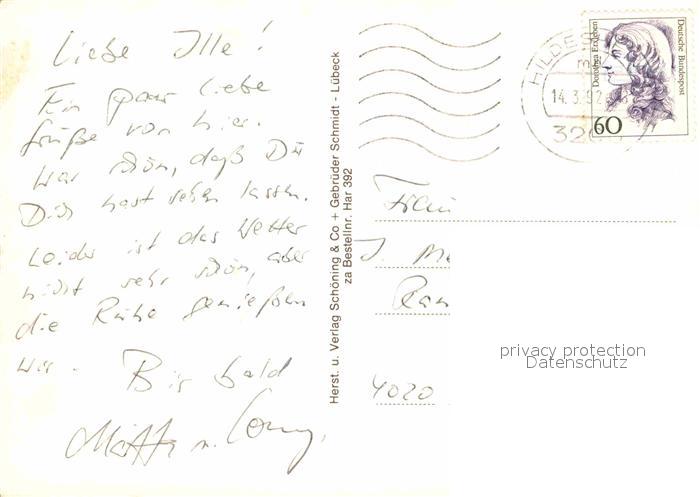 Liebe Ille!
Ein paar liebe
Grüße von hier.
War schön, daß Du
Dich hast sehen lassen.
Leider ist das Wetter
nicht sehr schön, aber
die Ruhe genießen
wir. Bis bald
u.
Herst. u. Verlag Schöning & Co + Gebrüder Schmidt - Lübeck
za Bestellnr. Har 392
HILDE
14.3.92
320
Dorothea Erxleben
Deutsche Bundespost
60
Frau
J. Me
Ran
4020
privacy protection
Datenschutz